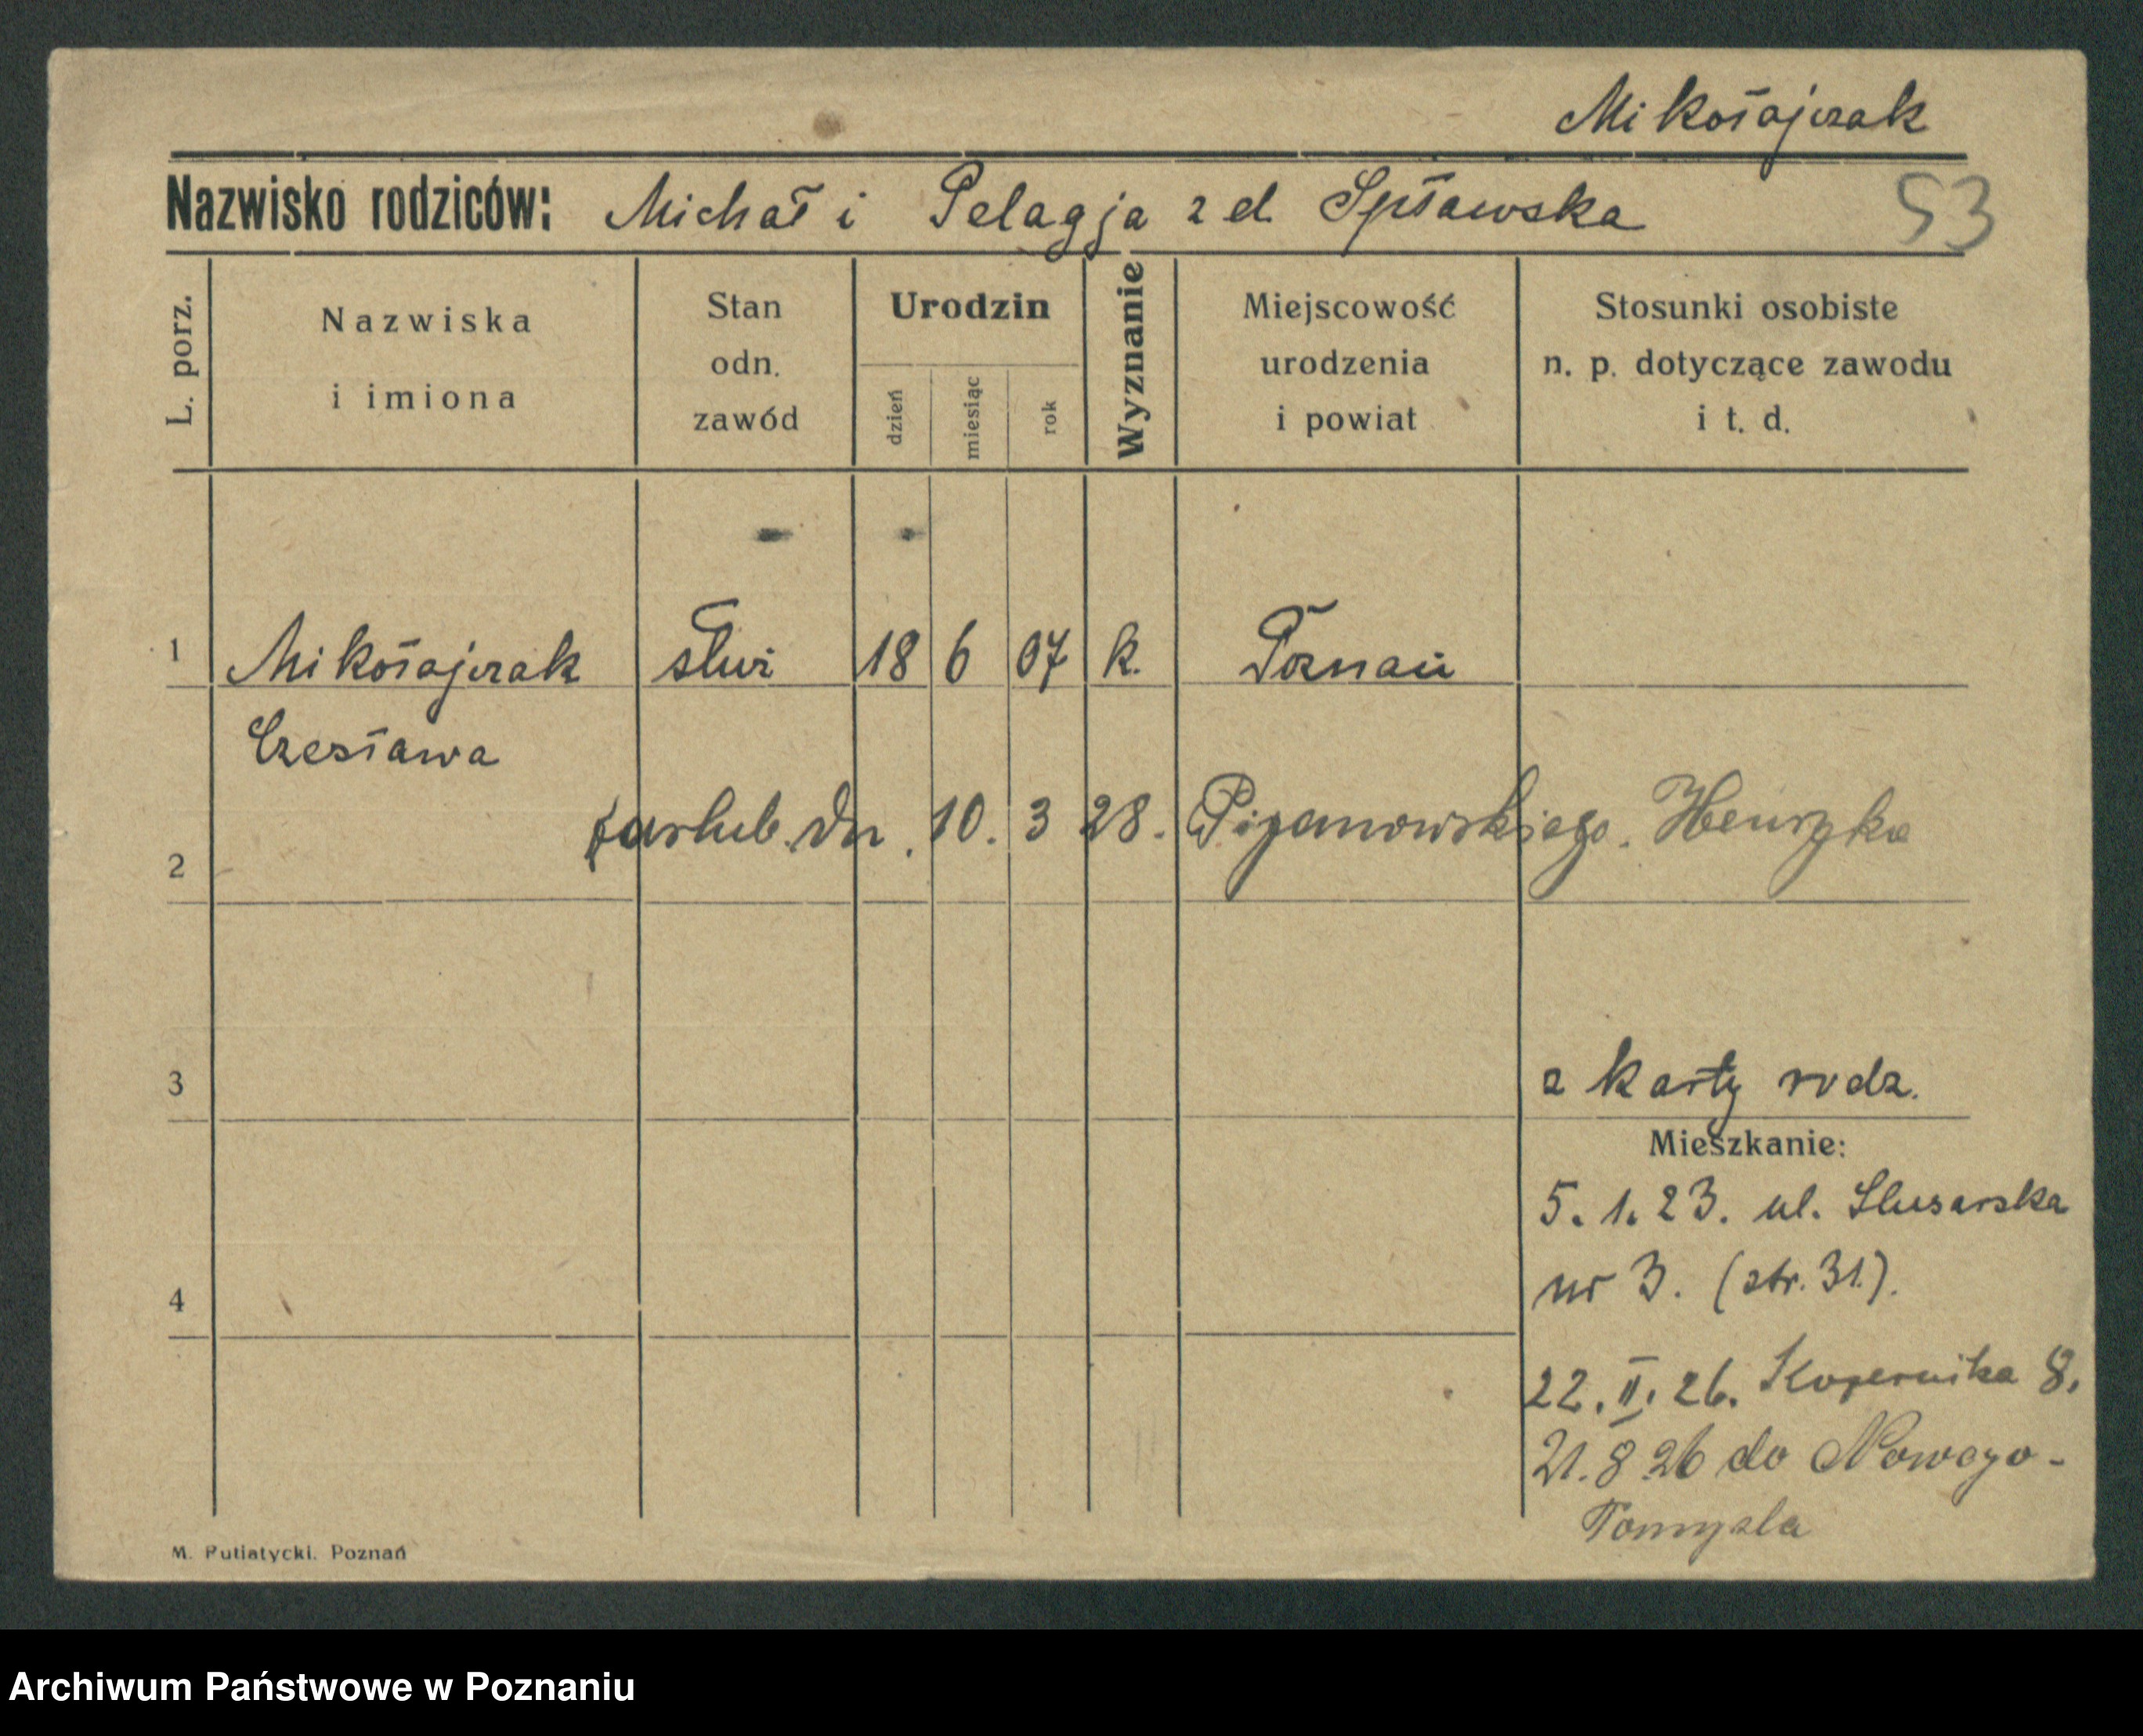 Mikołajczak
Nazwisko rodziców: Michał i Pelagja z d. Spławska 53
L. porz.
Nazwiska
i imiona
Stan
odn.
zawód
Urodzin
dzień
miesiąc
rok
Wyznanie
Miejscowość
urodzenia
i powiat
Stosunki osobiste
n. p. dotyczące zawodu
i t. d.
1 Mikołajczak służ 18 6 07 k. Poznań
Czesława
zaślub. dn. 10. 3 28. Henryka
2
3 z karty rodz.
Mieszkanie:
5. 1. 23. ul. Slusarska
nr 3. (str. 31.).
4
22. II. 26. Kopernika 8.
21. 8 26 do Nowego-
Tomysla
M. Putiatycki. Poznań
Archiwum Państwowe w Poznaniu